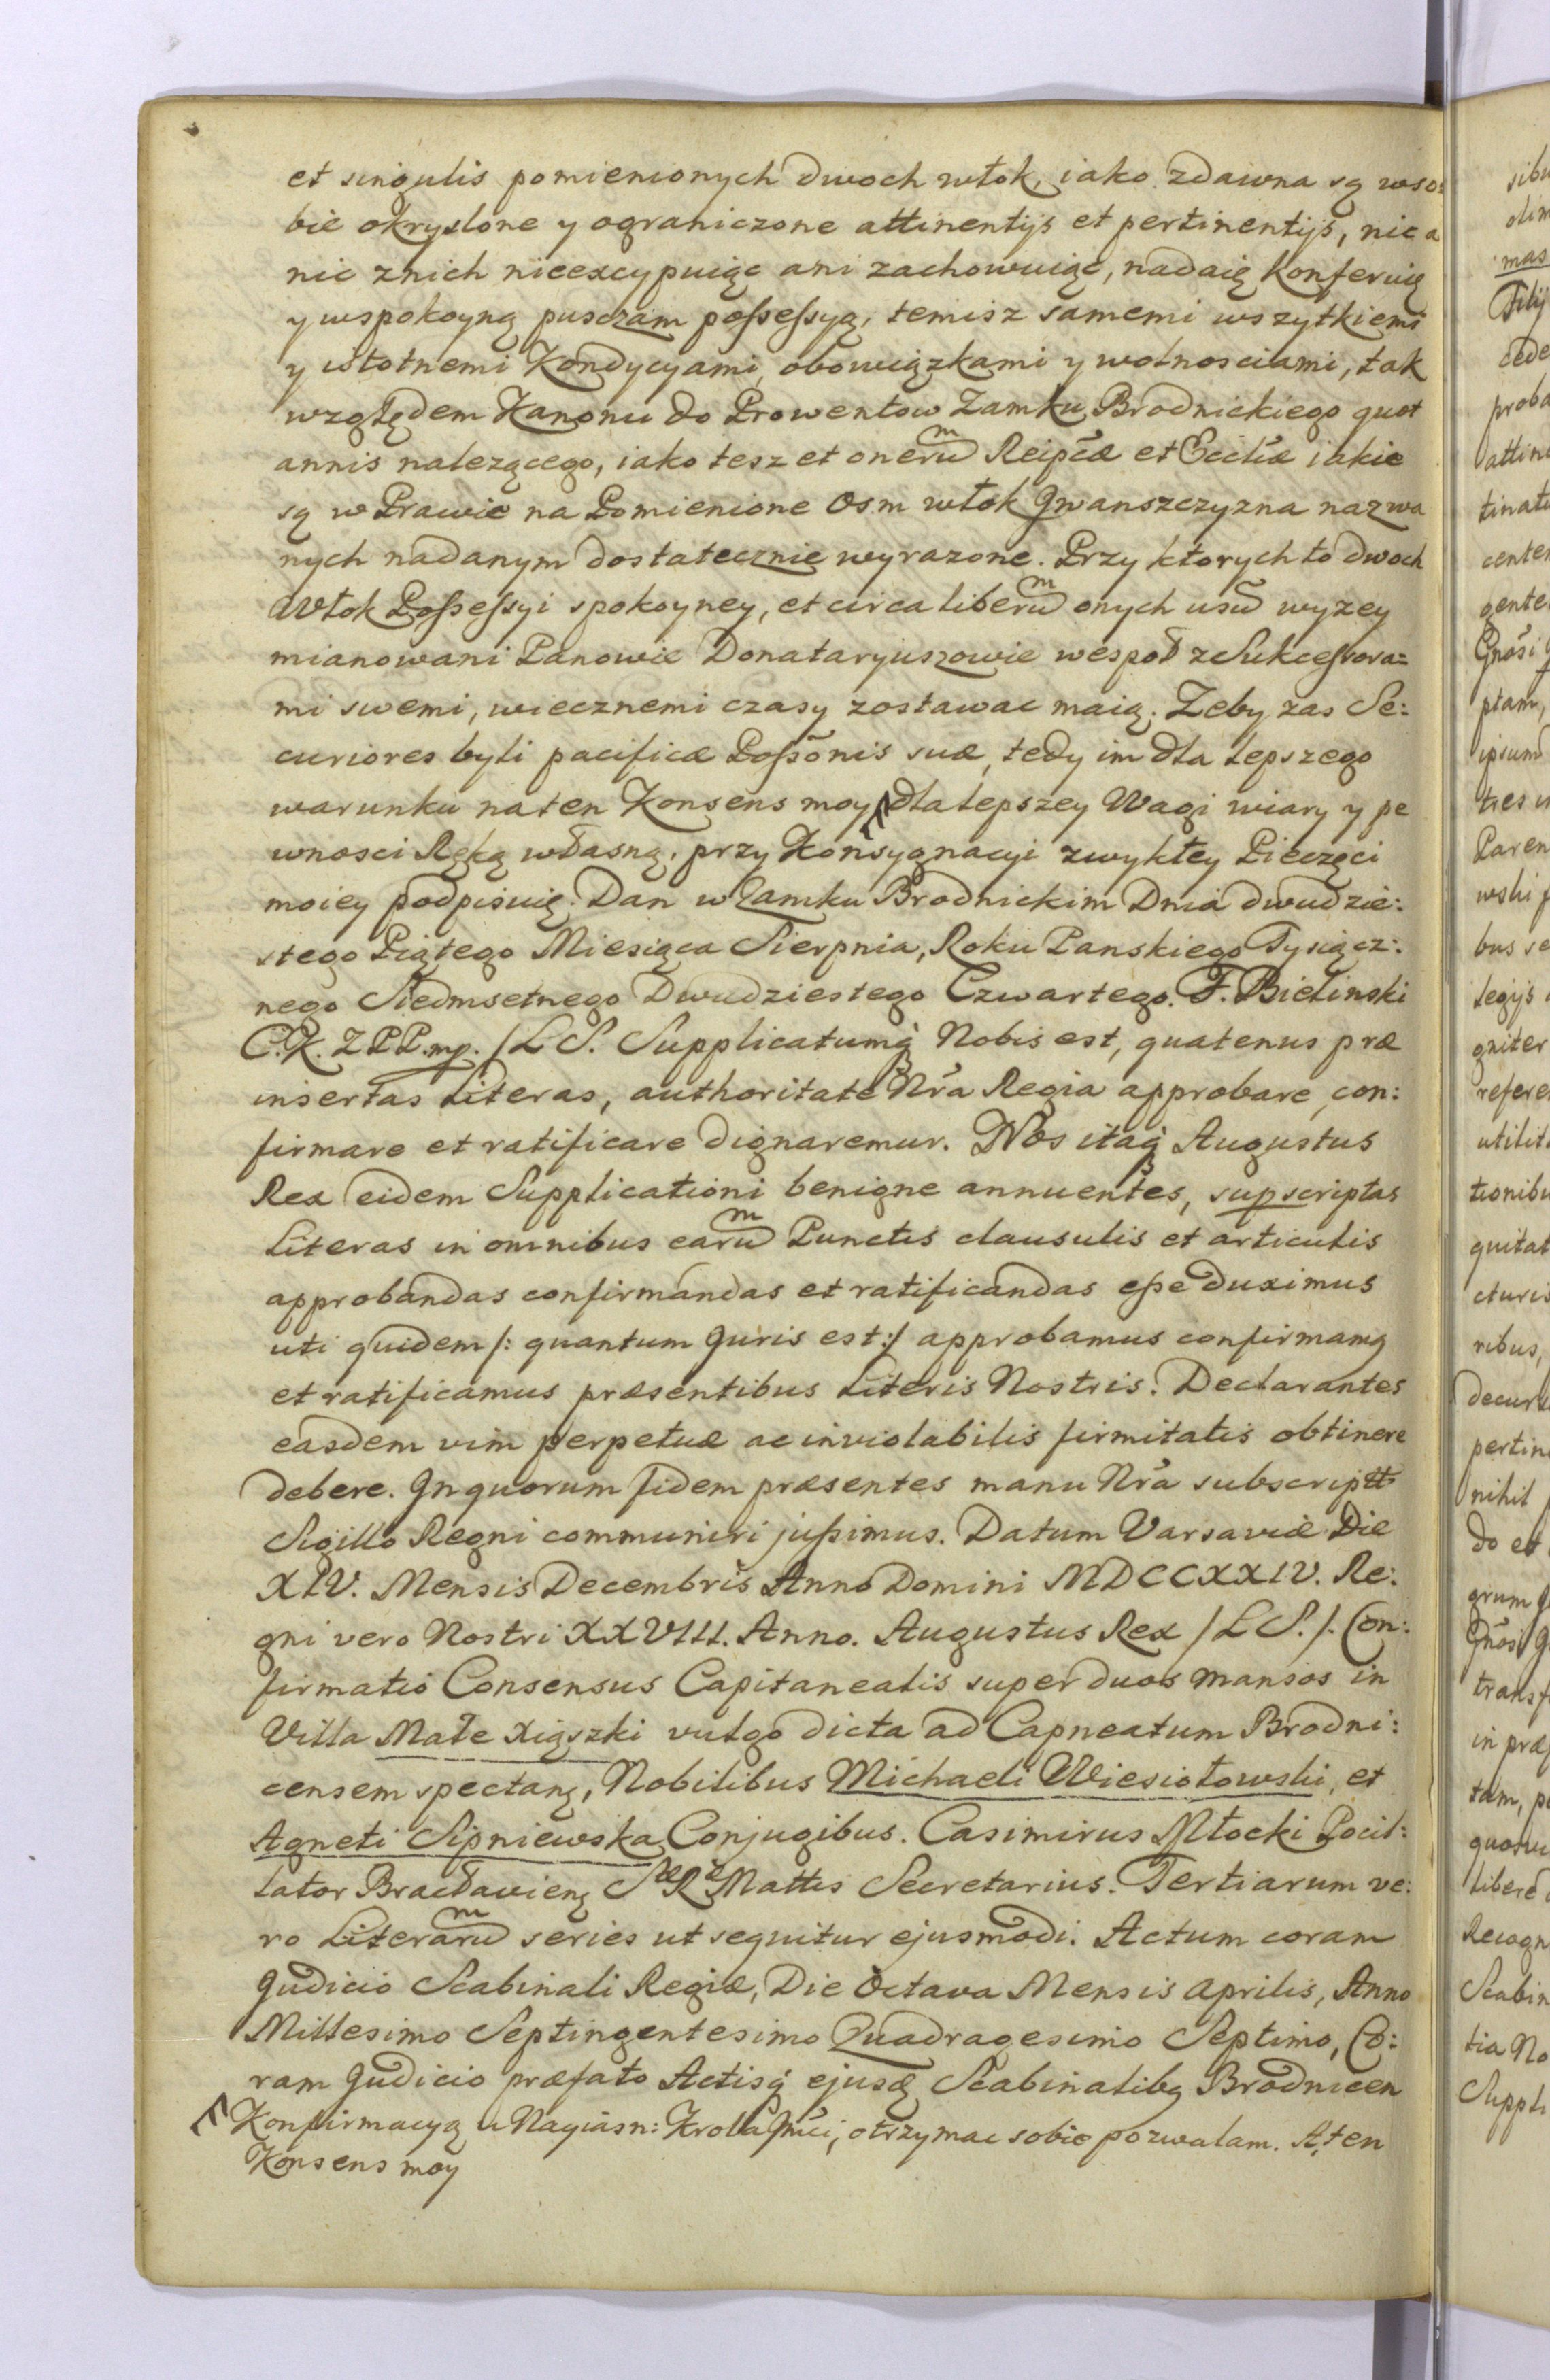 et singulis pomienionych dwoch włok, iako zdawna są wso:
bie okryslone y ograniczone attinentijs et pertinentijs, nic a
nic znich nieexcypuiąc ani zachowuiąc, nadaię Konferuię
y wspokoyną pusczam possessyą, temisz samemi wszytkiemi
y istotnemi Kondycyami, obowiązkami y wolnosciami, tak
względem Kanonu do Prowentow Zamku Brodnickiego quot
annis nalezącego, iako tesz et onerum Reipcæ et Ecclíæ iakie
są w Prawie na Pomienione Osm włok Jwanszczyzna nazwa
nych nadanym dostatecznie wyrazone. Przy ktorych to dwoch
Włok Possessyi spokoyney, et circa liberum onych usũ wyzey
mianowani Panowie Donataryuszowie wespoł z Sukcessora=
mi swemi, wiecznemi czasy zostawac maią. Zeby zas Se:
curiores byli pacificæ Possõnis suæ, tedy im dla lepszego
warunku na ten Konsens moy dla lepszey Wagi wiary y pe
wnosci Ręką własną, przy Konsygnacyi zwykłey Pieczęci
moiey podpisuię. Dan w Zamku Brodnickim Dnia dwudzie:
stego Piątego Miesiąca Sierpnia, Roku Panskiego Tysiącz:
nego Siedmsetnego Dwudziestego Czwartego. F. Bielinski
C. K. Z P P. mp. /L S. Supplicatumq Nobis est, quatenus præ
insertas Literas, authoritate Nrá Regia approbare, con:
firmare et ratificare dignaremur. Nos itaq Augustus
Rex eidem Supplicationi benigne annuentes, supscriptas
Literas in omnibus earum Punctis clausulis et articulis
approbandas confirmandas et ratificandas esse duximus
uti quidem /: quantum Juris est:/ approbamus confirmamq
et ratificamus præsentibus Literis Nostris. Declarantes
easdem vim perpetuæ ac inviolabilis firmitatis obtinere
debere. Jn quorum fidem præsentes manu Nrá subscriptt
Sigillo Regni communiri jussimus. Datum Varsaviæ Die
XIV. Mensis Decembris Anno Domini MDCCXXIV. Re:
gni vero Nostri XXVIII. Anno. Augustus Rex /L S./. Con:
firmatio Consensus Capitanealis super duos mansos in
Villa Małe Xiąszki vulgo dicta ad Capneatum Brodni:
censem spectanq, Nobilibus Michaeli Wiesiołowski, et
Agneti Sipniewska Conjugibus. Casimirus Młocki Pocil:
lator Bracławienq Sæ Ræ Mattis Secretarius. Tertiarum ve:
ro Literarum series ut sequitur ejusmodi. Actum coram
Judicio Scabinali Regiæ, Die Octava Mensis Aprilis, Anno
Millesimo Septingentesimo Quadragesimo Septimo, Co:
ram Judicio præfato Actisq ejusq Scabinalibq Brodnicen
Konfirmacyą u Nayiásn: Krola Jmći, otrzymac sobie pozwalam. A ten
Konsens moy
sibu
olim
mas
Filij
cede
proba
attin
tinati
center
gente
Gnosi
ptam,
ipsum
tres
Paren
wski
bus se
legijs
gniter
refere
utilit
tionibu
quitat
cturis
ribus,
decurs
pertin
nihil
do et
grum
Gnosi
transf
in præ
tam,
quoru
libere
Recogn
Scabin
tia No
Suppli